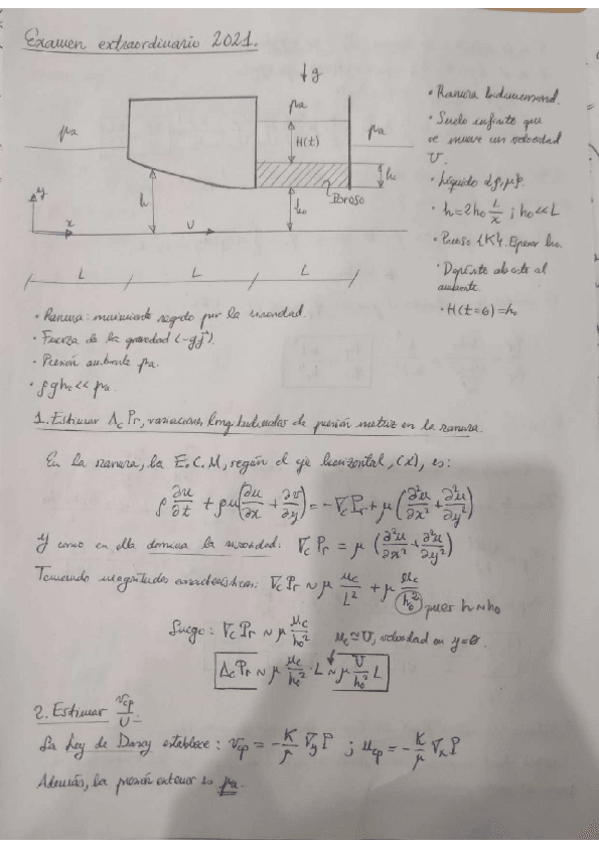 Examen extraordinario 2021.
↓g
Pa
Pa
H(t)
Pa
h₀
h
h₀
Poroso
y
x
U
L
L
L
• Ranura bidimensional.
• Suelo infinito que
se mueve un velocidad
U.
• Líquido {ρ, μ}.
• h = 2h₀ L/x ; h₀ << L
• Poroso {K}. Espesor h₀.
• Depósito abierto al
ambiente.
• H(t=0) = h₀
• Ranura: movimiento regido por la viscosidad.
• Fuerza de la gravedad (-g j).
• Presión ambiente Pa.
• ρgh₀ << Pa.
1. Estimar Δc Pr, variaciones longitudinales de presión motriz en la ranura.
En la ranura, la E.C.M, según el eje horizontal, (x), es:
ρ ∂u/∂t + ρu(∂u/∂x + ∂v/∂y) = -∇c Pr + μ(∂²u/∂x² + ∂²u/∂y²)
Y como en ella domina la viscosidad: ∇c Pr = μ(∂²u/∂x² + ∂²u/∂y²)
Tomando magnitudes características: ∇c Pr ~ μ uc/L² + μ uc/h₀² pues h ~ h₀
Luego: ∇c Pr ~ μ uc/h₀² uc ≃ U, velocidad en y=0.
Δc Pr ~ μ uc/h₀² · L ~ μ U/h₀² L
2. Estimar vcp/U.
La Ley de Darcy establece: vcp = - K/μ ∇y P ; ucp = - K/μ ∇x P
Además, la presión exterior es Pa.